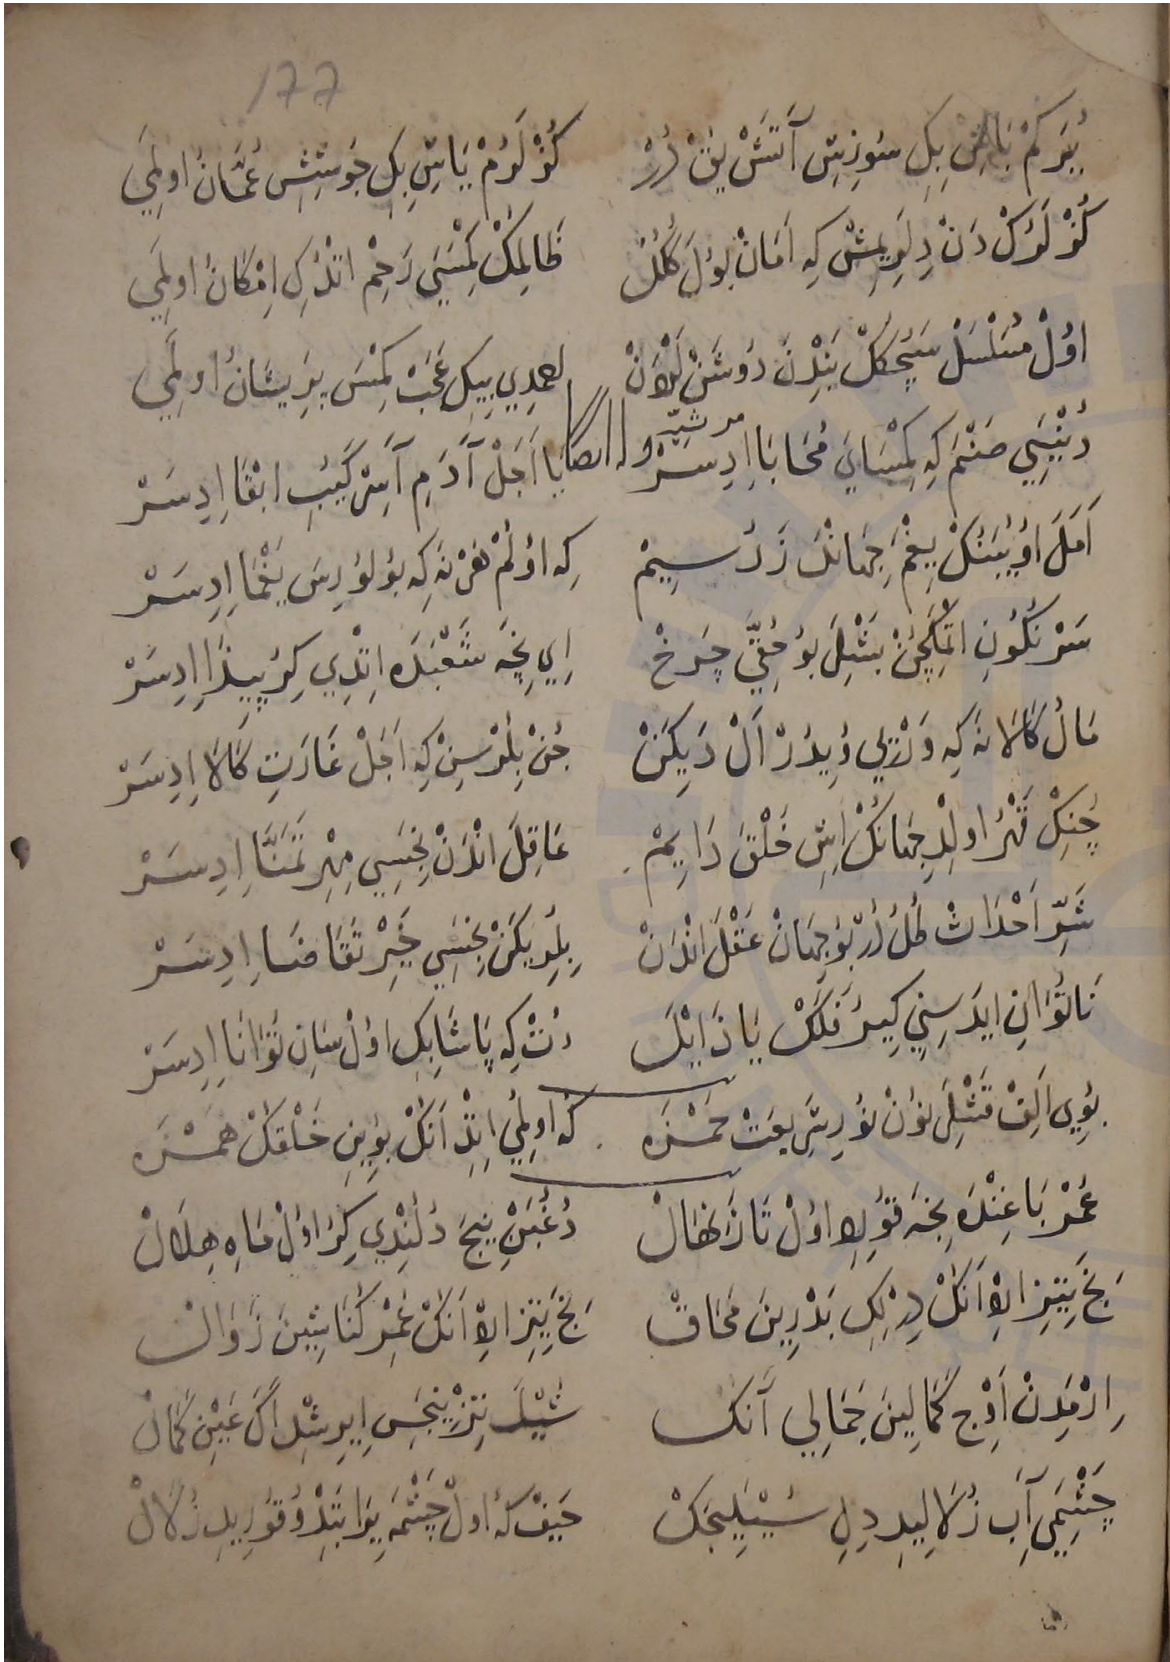 177
يُرَكُمْ بَاشِ بِكِ سُوزِشِ آتَشْ يَقَرْ دُرْ كُوزْلَرُمْ يَاشِ بِكِ جُوشِشِ عُمَّانْ اولَمِي
كُزْلَرُكْ دَنْ دِلَرِمِشْ كِه اَمَانْ بُولَ كُكُلْ ظَالِمِكْ كِمْسَيَ رَحِمْ اتْدُكِ اِمْكَانْ اولَمِي
اوُلْ مُسَلْسَلْ سَچُكُكْ بَنْدِنَ دُوشَنْ لَرْدَنْ احمدي بيكي عَجَبْ كِمْسَ پَرِيشَانْ اولَمِي
مرثيه وله ايضا
دُنْيَيِ صَنْمَ كِه كِمْسَايَ مُحَابَا اِدِسَرْ يَا اَجَلْ آدَمِ آسِرْكَيُبِ ابْقَا اِدِسَرْ
اَمَلَ اوُيُبَنُكْ يِغْمَ جِهَانْكْ زَرُ سِيمْ كِه اوُلُمْ هَرْ نَه كِه بُولُورِسَ يَغْمَا اِدِسَرْ
سَرْ نُكُونِ اتْمِكِچُنْ بَشْلَ بُو حُقَّيِ چَرخْ اِي نِچَه شَعْبَدَه اِتْدِي كِرُ پَيْدَا اِدِسَرْ
مَالُ كَالَا نَه كِه وَرْدِي دُيدُرْ اَلْ دَيكَنْ چُنْ بِلُرْسِنْ كِه اَجَلْ غَارَتِ كَالَا اِدِسَرْ
چُنِكْ قَهْرُ اولْدِ جِهَانُكْ اِشِ خَلْقَ دَايِمْ عَاقِلَ انْدَنْ نِجَسِي مِهْرِ تَمَنَّا اِدِسَرْ
شَرِّ اَحْدَاثْ طُلُ دُرْ بُو جِهَانْ عَقْلَ انْدَنْ بِلُرِيكَنْ نِجَسِي خَيْرْ تَقَاضَا اِدِسَرْ
نَاتُوَانِ ايدَسِنِي كِيرُ فَلَكْ يَا ذَانَكْ دُتْ كِه پَاشَا بِكِ اوُلْ سَانِ تُوَانَا اِدِسَرْ
بُويِ اَلِفْ قَشْلَ نُونْ نُورِ شَرِيعَتْ حَمْزَه كه اولُمِ اِتْدِ اَنُكْ بُويِنِ خَلْقُكْ هَمْزَه
عُمْرُ بَاغِنْدَه نِجَه قُورِدِ اوُلْ تَازَه نِهَالْ دُغُبَنْ نِيجَ دُلُنْدِي كِرُ اوُلْ مَاهِ هِلَالْ
نِجَ يَتِزْ ارْدِ اَنُكْ دِرْلِكِ بَدْرِينَ مَحَاقْ نِجَ يَتِزْ ارْدِ اَنُكْ عُمْرِ كُنَاشِينَ زَوَالْ
اِرْمَدِنْ اَوْجِ كَمَالِينَ جَمَالِي آنَكْ شُيْلَ تِزْ نِيجَسِ اِيرِشْدِ اَكَ عَيْنِ كَمَالْ
چَشْمَيِ آبَ زُلَالِيدِ دِلِ سُيْلِيجَكْ حَيَفْ كه اوُلْ چَشْمَ يِرَا بَتْدُ وُ قُورِيدِ زُلَالْ